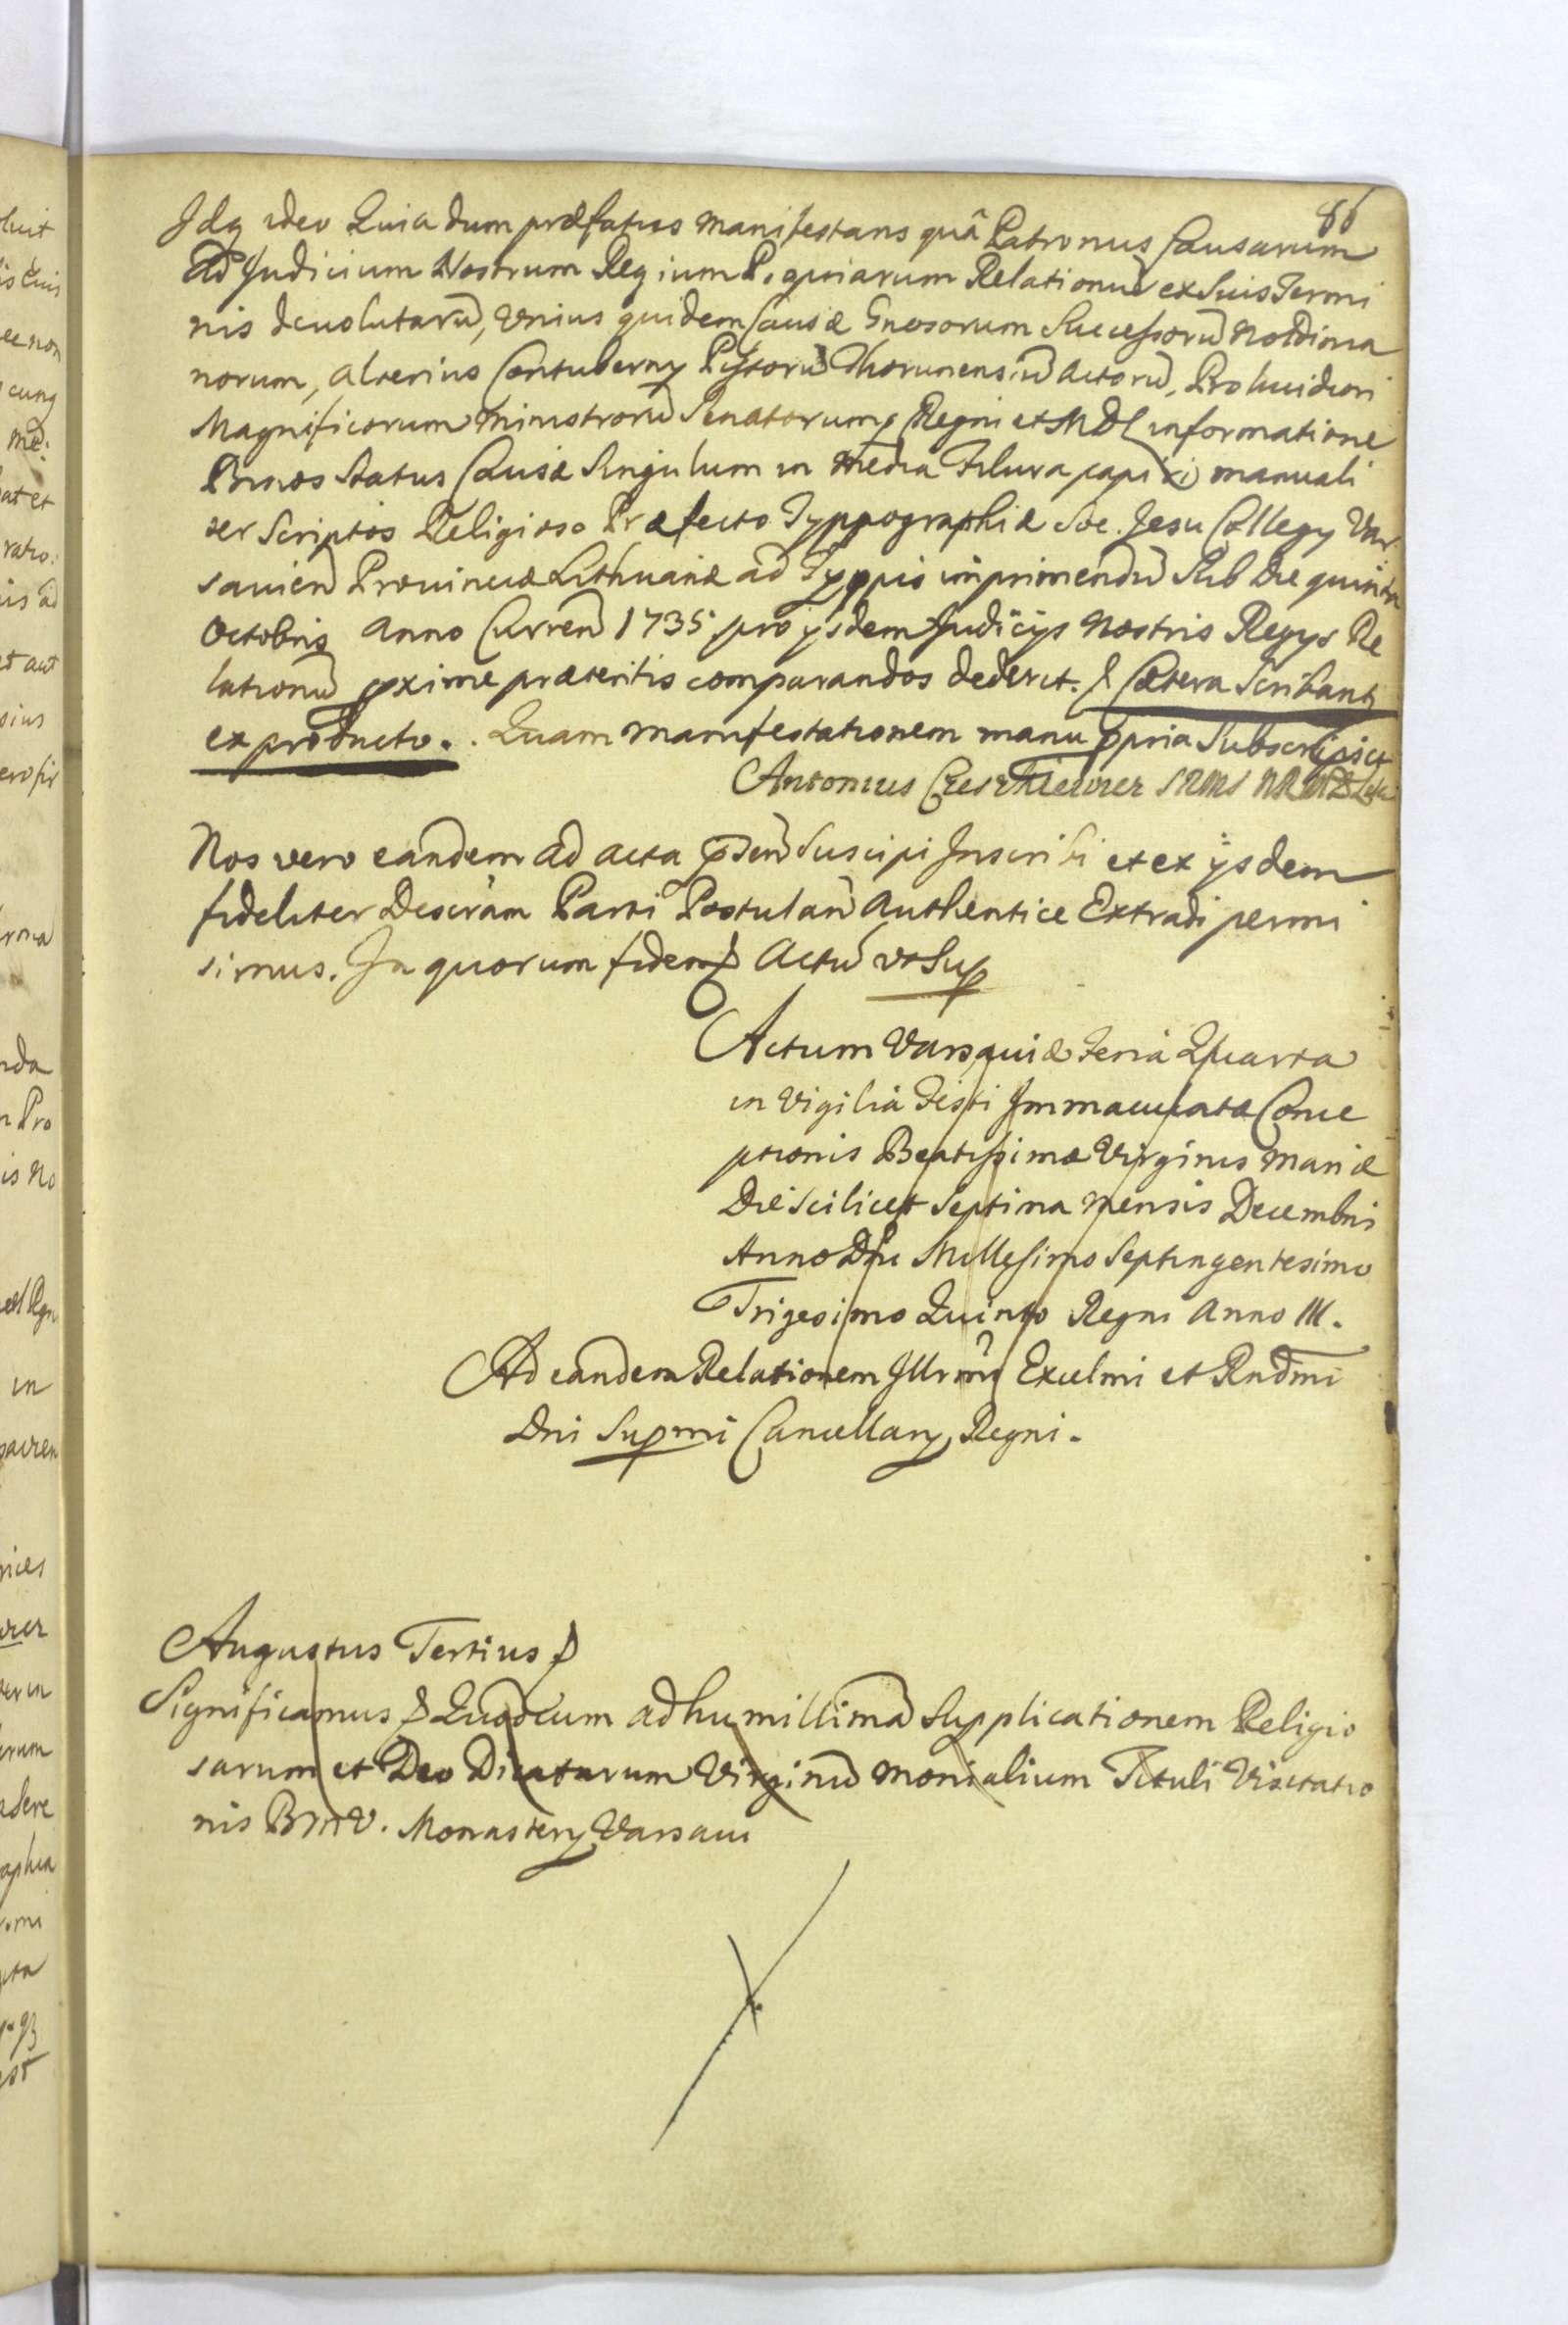 86
Idq ideo Quia dum præfatus manifestans quâ Patronus Causarum
ad Judicium Nostrum Regium P. quiarum Relationũ ex Suis Termi
nis devolutarũ, Unius quidem Causæ Gnosorum Successorũ
norum, alterius Contuberny Pistorũ Thorunensiũ actorũ, Pro
Magnificorum Ministrorũ Senatorumq Regni et MDL informatione
Binos Status Causæ Singulum in media manuali
ter Scriptos Religioso Præfecto Typpographiæ Soc. Jesu Collegy Var
savien Provinciæ Lithuanæ ad Typpis imprimendũ Sub die quinta
Octobris anno Curren 1735 pro ysdem Judicijs Nostris Regys Re
lationũ pxime præteritis comparandos dederit. & Cætera Scribant
ex producto. Quam manifestationem manu ppria Subscripsit
Antonius
Nos vero eandem ad acta pñ Suscipi Inscribi et ex ijsdem
fideliter Descrãm Parti Postulañ authentice Extradi permi
simus. In quorum fidem & Actũ ut Sup
Actum Varsaviæ Feria Quarta
in Vigilia Festi Immaculatæ Conce
ptionis Beatissimæ Virginis Mariæ
Die Scilicet Septima mensis Decembris
Anno Dñi Millesimo Septingentesimo
Trigesimo Quinto Regni Anno III.
Ad eandem Relationem Illrmi Excelmi et Rndmi
Dni Supmi Cancellary Regni.
Augustus Tertius &
Significamus & Quod cum ad humillimã Supplicationem Religio
sarum et Deo Dicatarum Virginũ monialium Tituli Visitatio
nis BMV. Monastery Varsavi